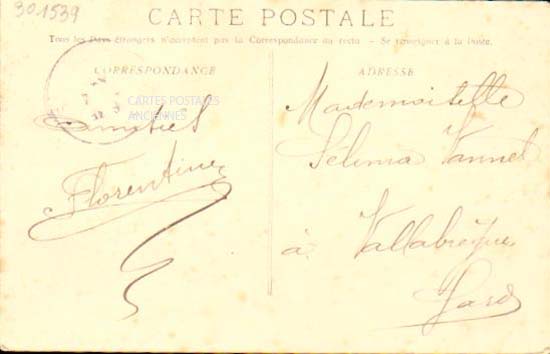 301539
CARTE POSTALE
Tous les Pays étrangers n'acceptent pas la Correspondance au recto - Se renseigner à la Poste.
CORRESPONDANCE
CARTES POSTALES
ANCIENNES
Amitiés
Florentine
ADRESSE
Mademoiselle
Sélima Vannel
à Vallabrègues
Gard